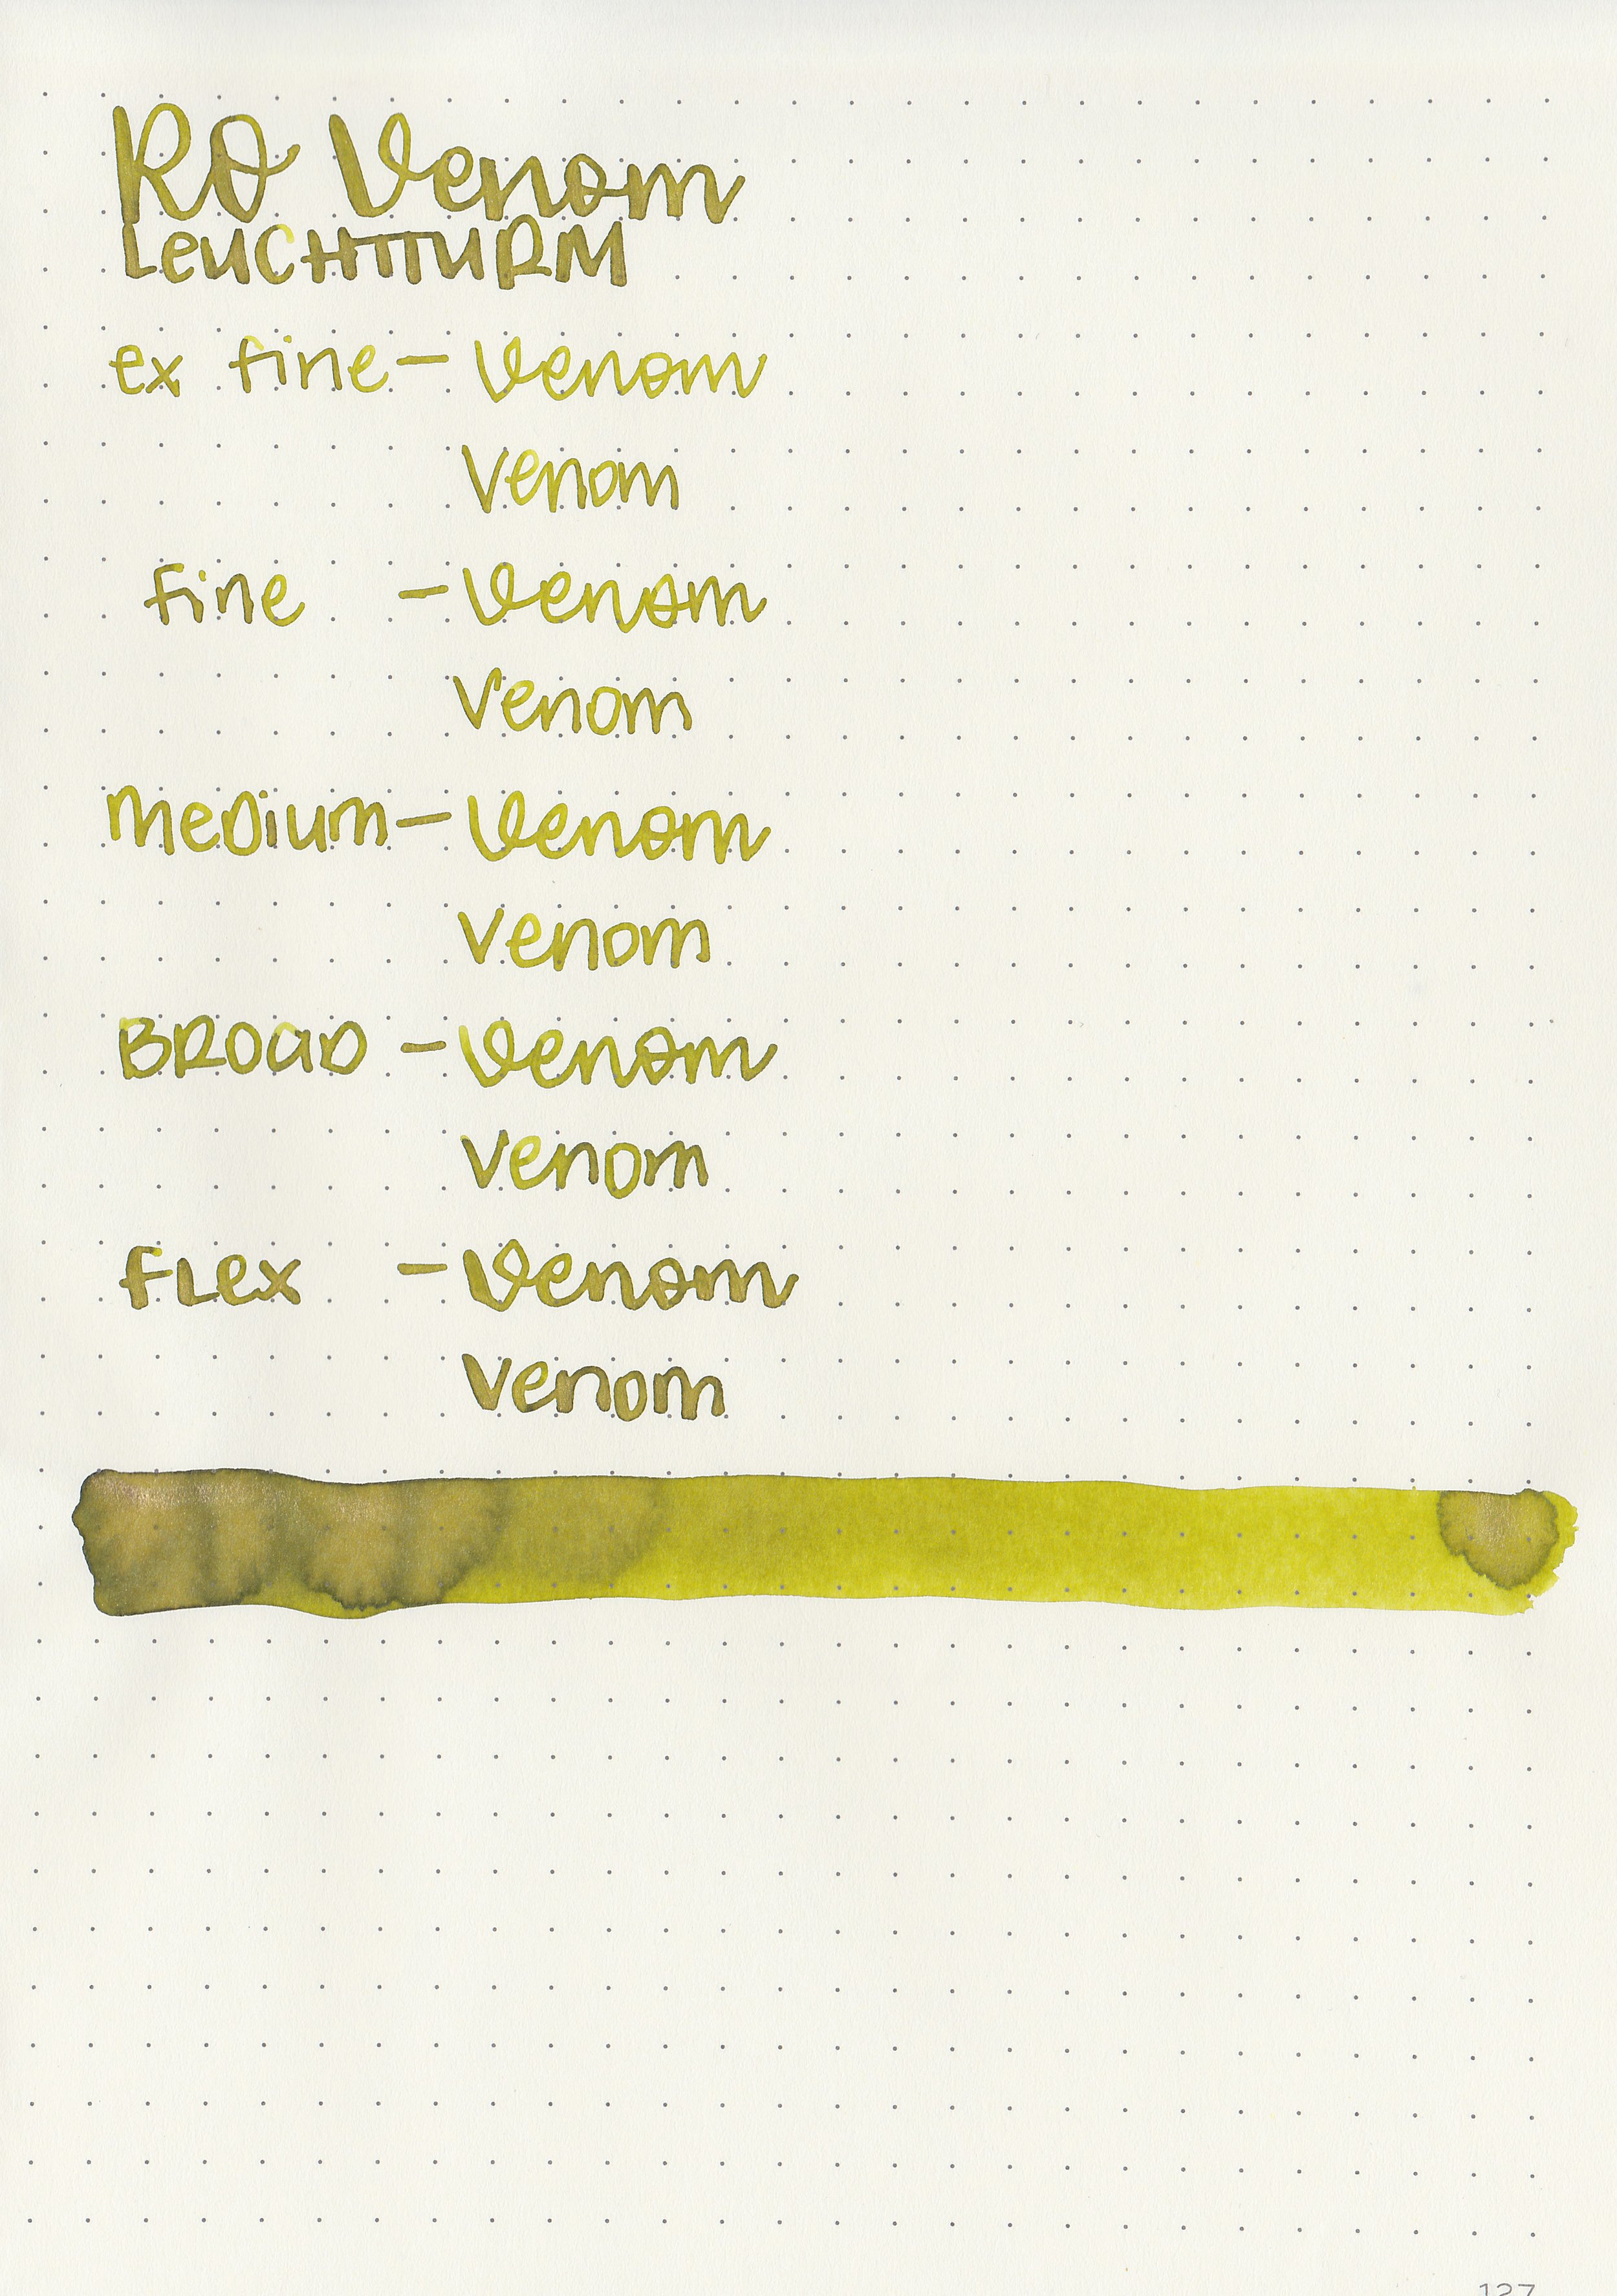 RO Venom
LEUCHTTURM
ex fine - Venom
Venom
fine - Venom
Venom
medium - Venom
Venom
BROAD - Venom
Venom
FLex - Venom
Venom
127